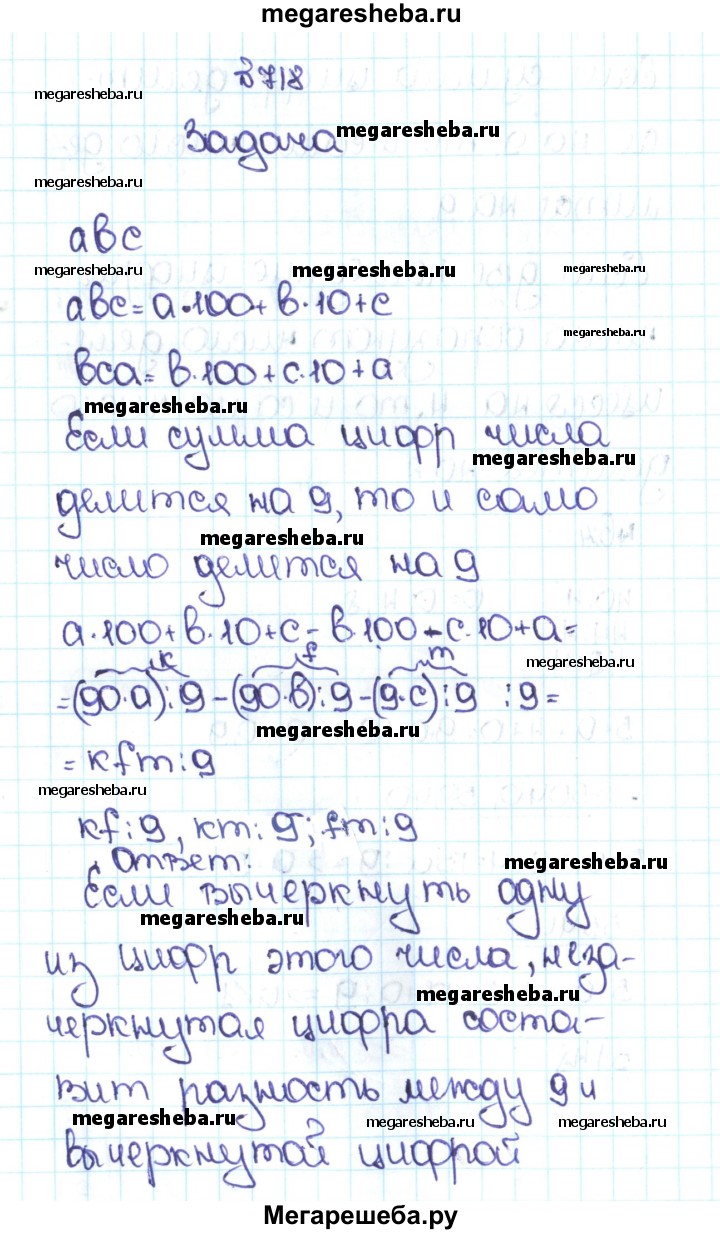 megaresheba.ru
№718
megaresheba.ru
Задача megaresheba.ru
megaresheba.ru
авс
megaresheba.ru megaresheba.ru megaresheba.ru
авс = а·100 + в·10 + с
megaresheba.ru
вса = в·100 + с·10 + а
megaresheba.ru
Если сумма цифр числа
megaresheba.ru
делится на 9, то и само
megaresheba.ru
число делится на 9
а·100 + в·10 + с - в·100 - с·10 + а =
k f m
megaresheba.ru
= (90·а) : 9 - (90·в) : 9 - (9·с) : 9 : 9 =
megaresheba.ru
= kfm : 9
megaresheba.ru
kf : 9, km : 9; fm : 9
Ответ: megaresheba.ru
Если вычеркнуть одну
megaresheba.ru
из цифр этого числа, неза-
megaresheba.ru
черкнутая цифра соста-
вит разность между 9 и
megaresheba.ru megaresheba.ru megaresheba.ru
вычеркнутой цифрой
Мегарешеба.ру